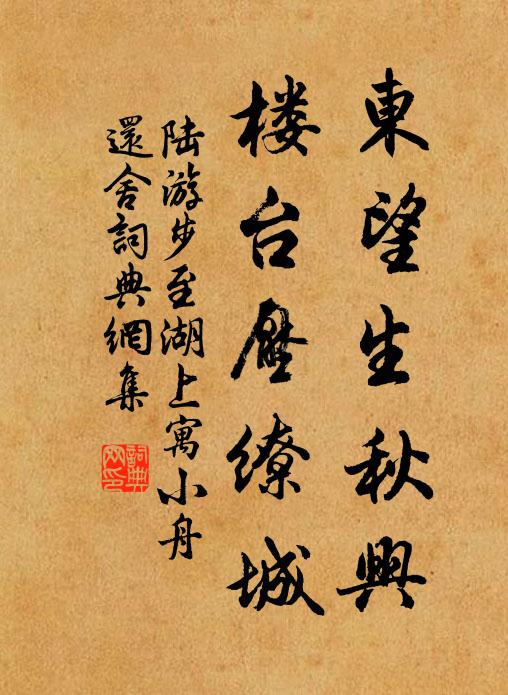 東望生秋興
楼台壓缭城
陆游步至湖上寓小舟
還舍詞典網集
詞典网印